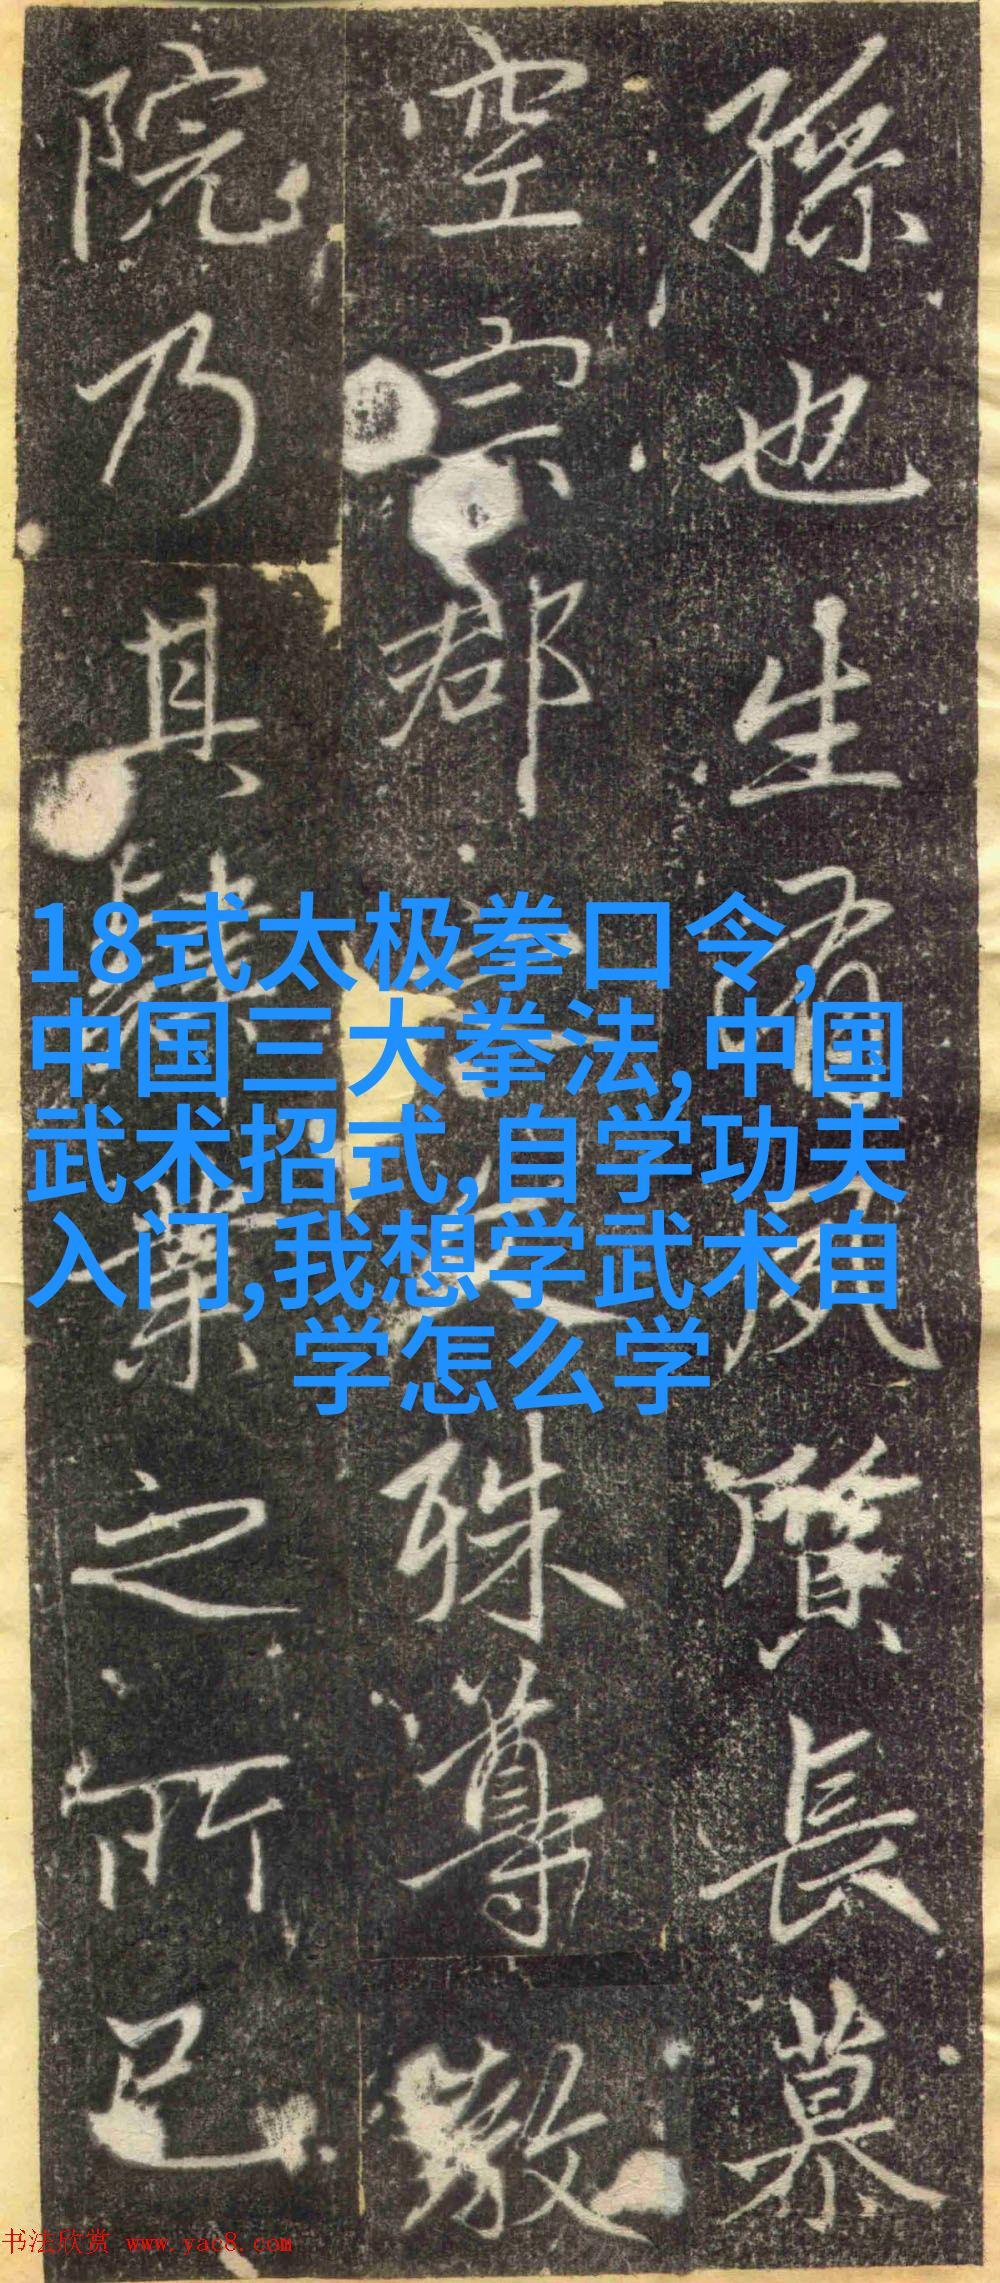 孫也生有夙質長慕
空宗郡文殊尊教
院乃其肄業之所已
18式太极拳口令,
中国三大拳法,中国
武术招式,自学功夫
入门,我想学武术自
学怎么学
书法欣赏 www.yac8.com